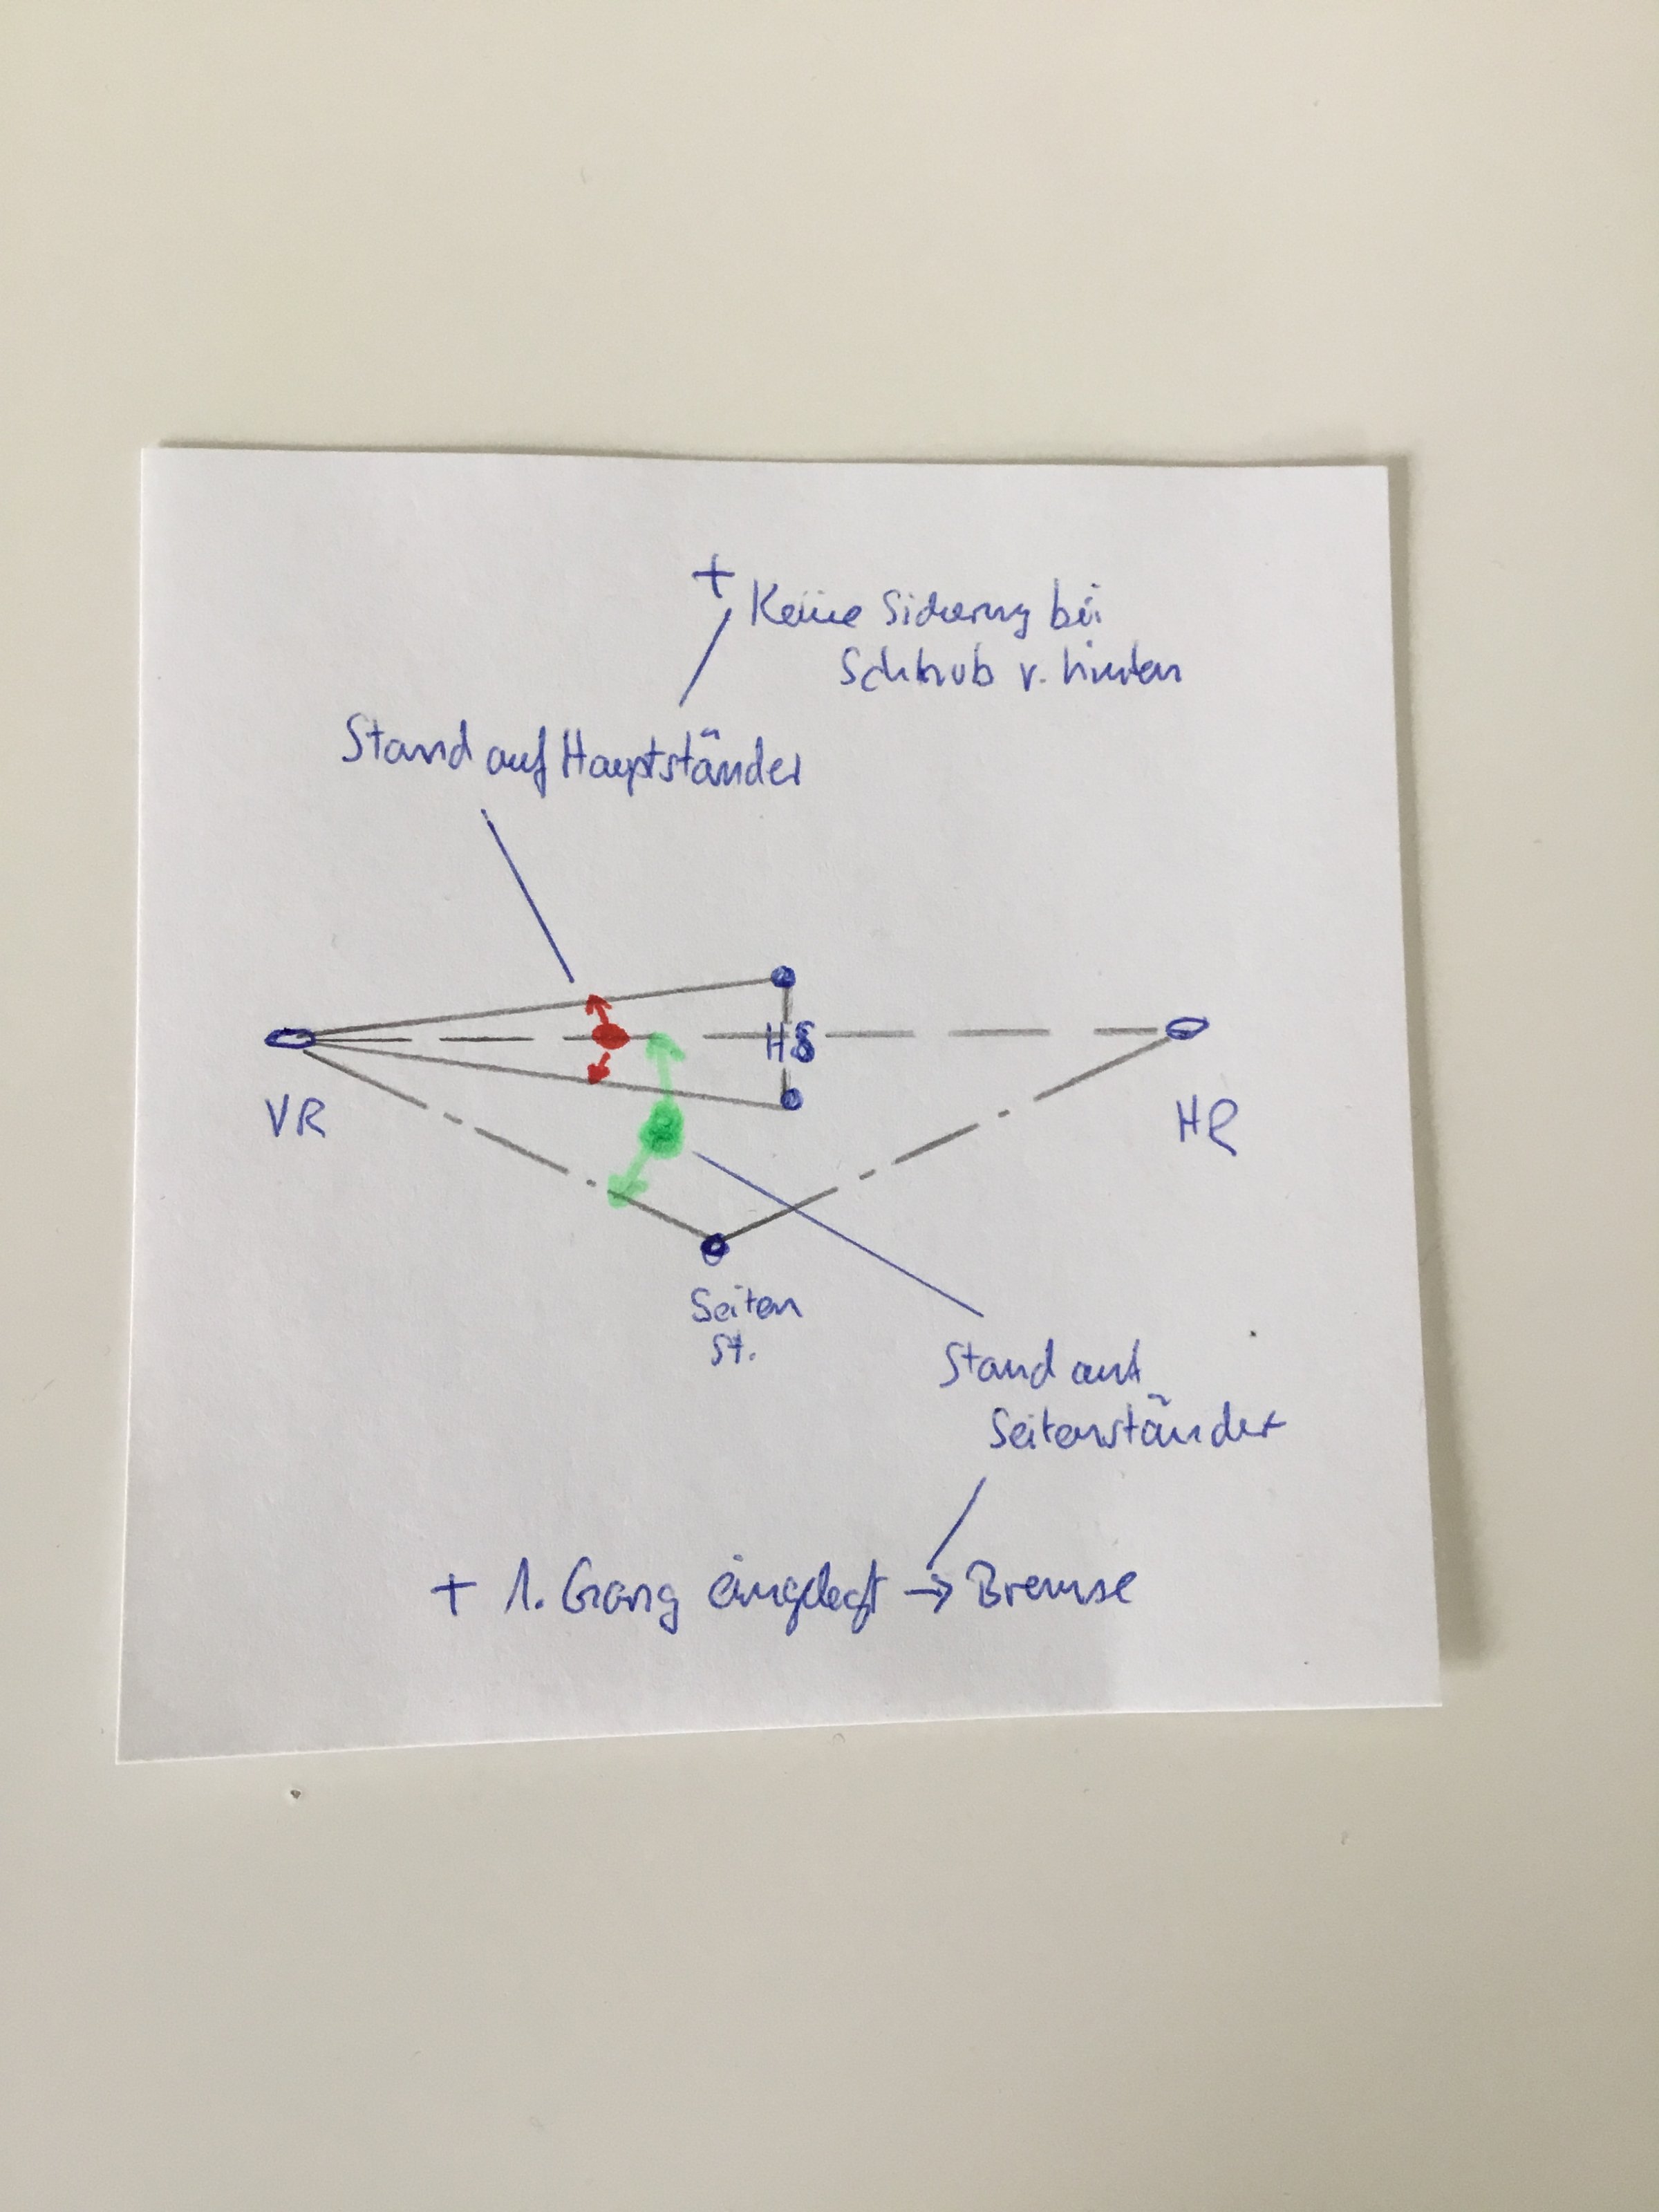 + Keine Sicherung bei
Schub v. hinten
Stand auf Hauptständer
HS
VR
HR
Seiten
St.
Stand auf
Seitenständer
+ 1. Gang eingelegt → Bremse